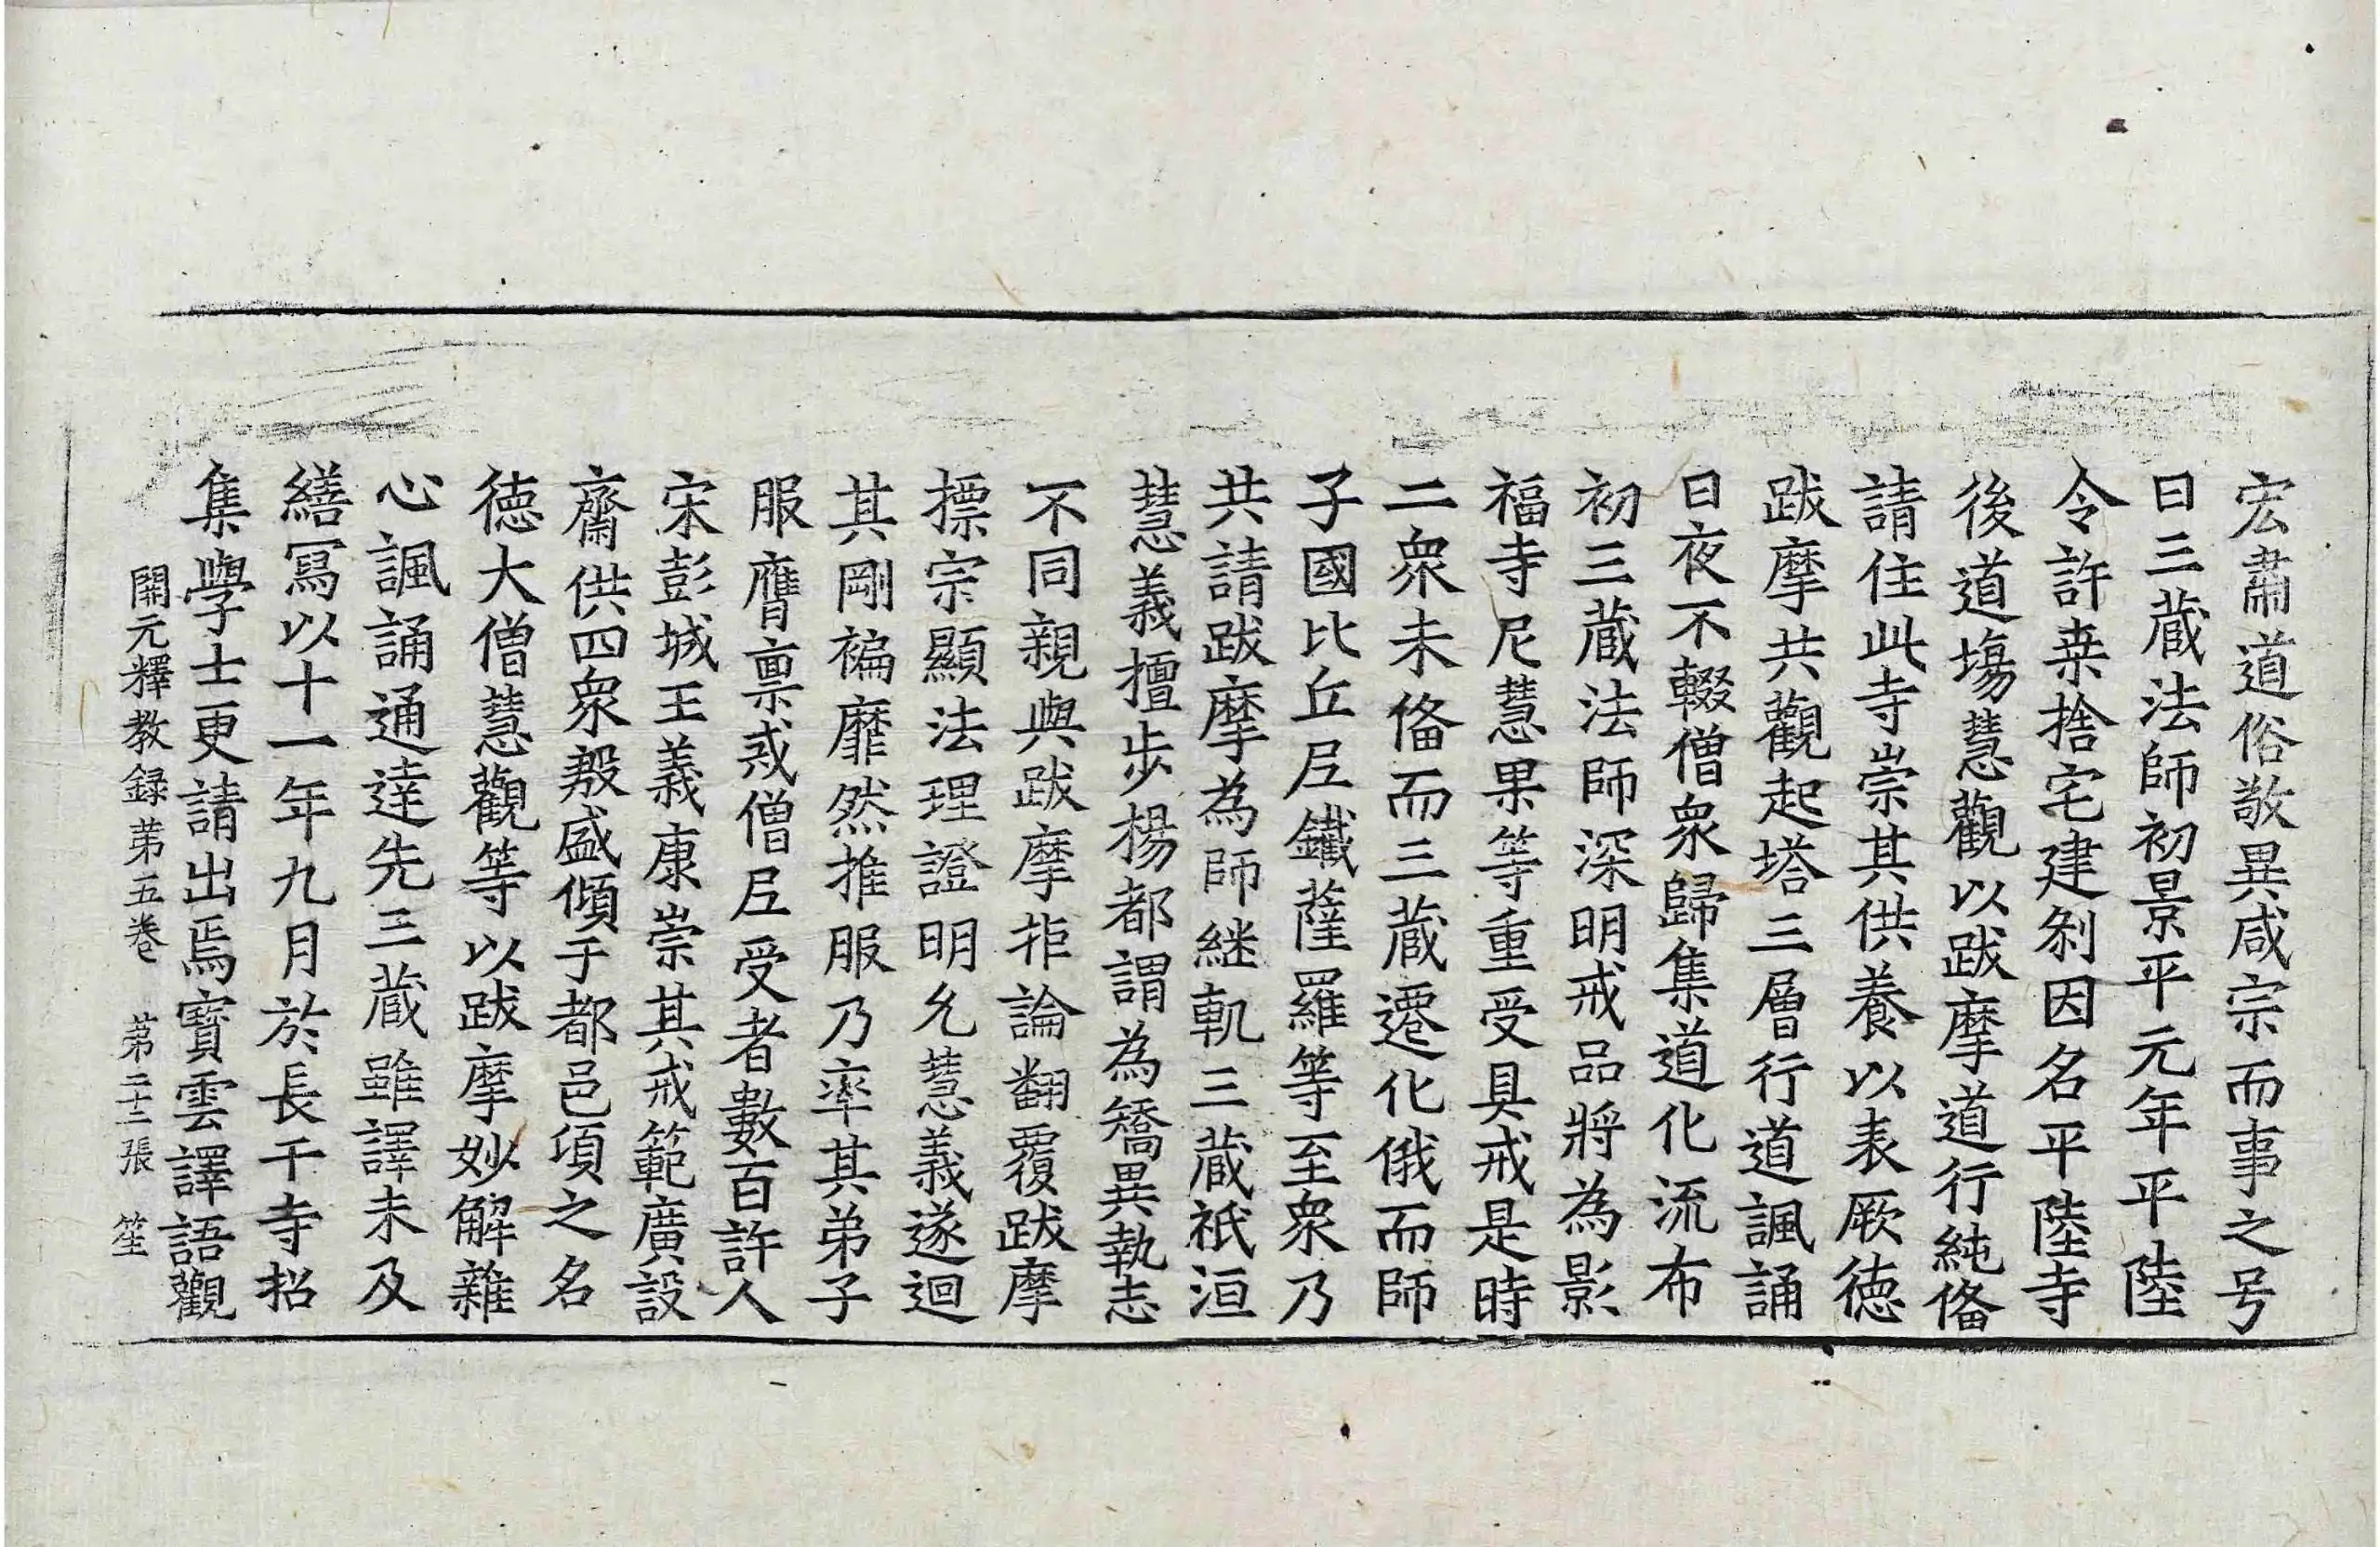 宏肅道俗敬異咸宗而事之号
曰三蔵法師初景平元年平陸
令許桒捨宅建刹因名平陸寺
後道場慧觀以跋摩道行純俻
請住此寺崇其供養以表厥德
跋摩共觀起塔三層行道諷誦
日夜不輟僧衆歸集道化流布
初三蔵法師深明戒品將為影
福寺尼慧果等重受具戒是時
二衆未俻而三蔵遷化俄而師
子國比丘尼鐵薩羅等至衆乃
共請跋摩為師継軌三蔵祇洹
慧義擅步楊都謂為矯異執志
不同親與跋摩拒論翻覆跋摩
摽宗顯法理證明允慧義遂迴
其剛褊靡然推服乃率其弟子
服膺禀戒僧尼受者數百許人
宋彭城王義康崇其戒範廣設
齋供四衆殷盛傾于都邑頃之名
德大僧慧觀等以跋摩妙解雜
心諷誦通達先三蔵雖譯未及
繕寫以十一年九月於長干寺招
集學士更請出焉寶雲譯語觀
開元釋教録苐五卷 苐二十二張 笙